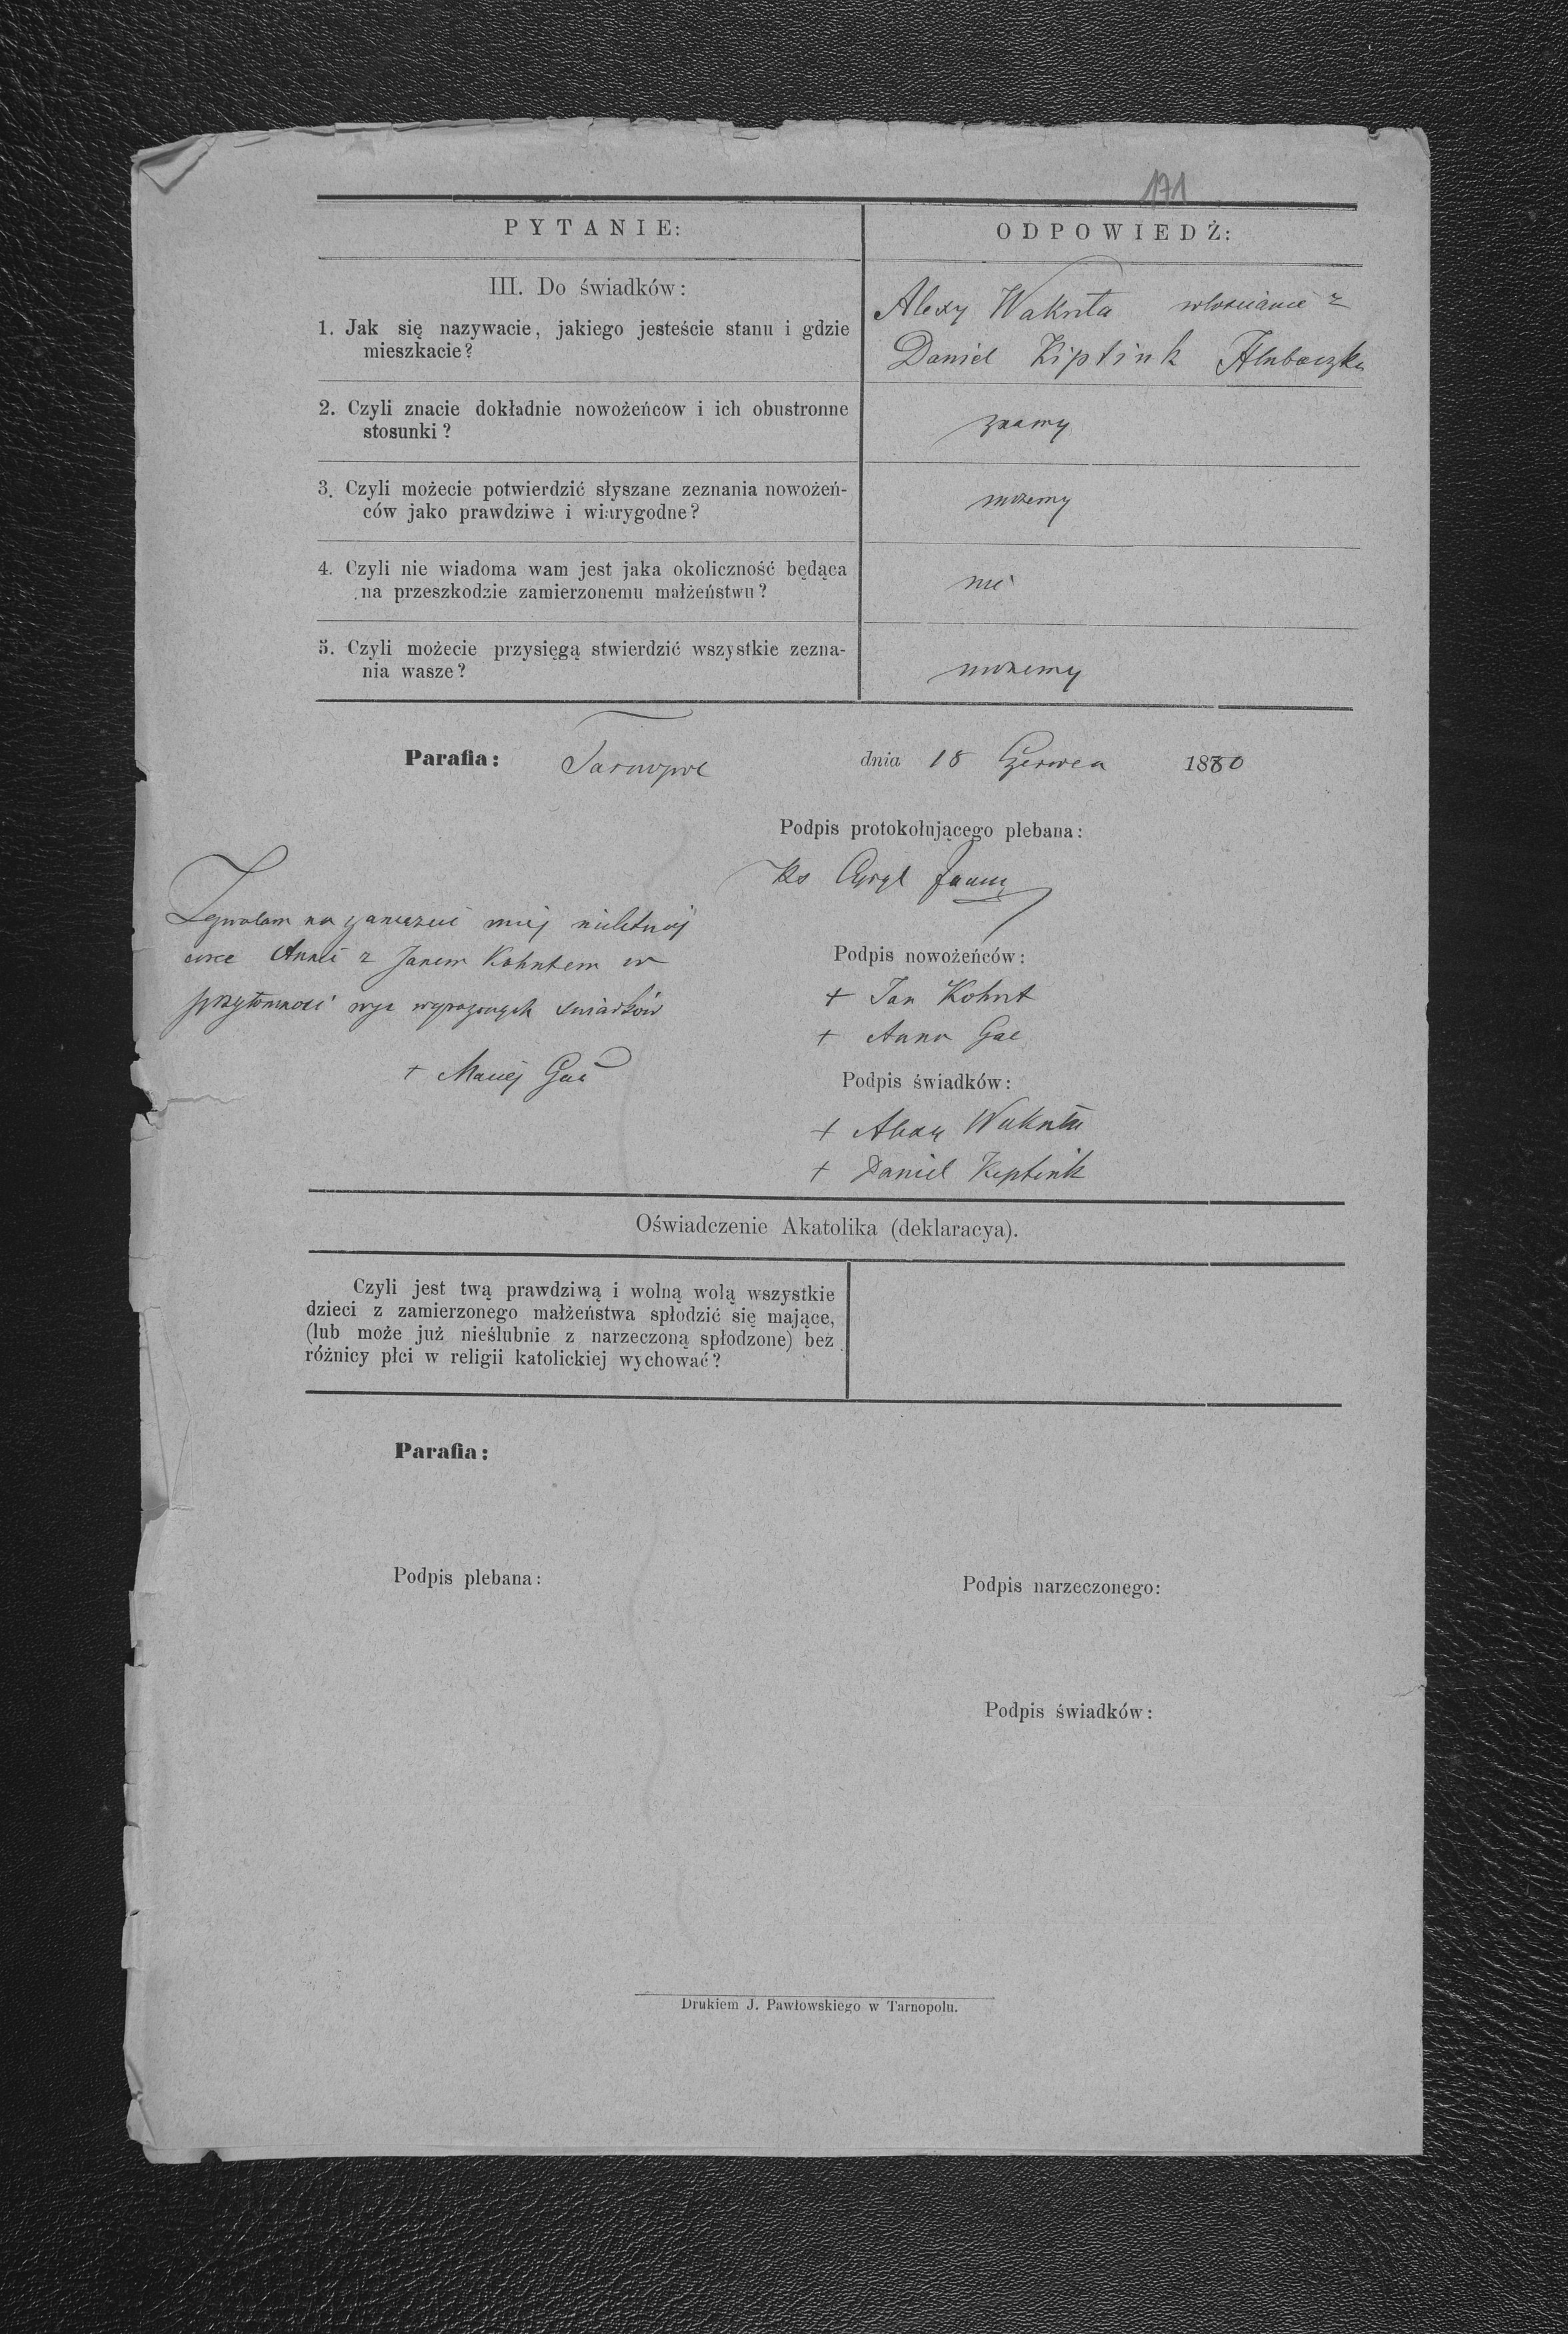 171
PYTANIE:
ODPOWIEDŹ:
III. Do świadków:
1. Jak się nazywacie, jakiego jesteście stanu i gdzie
mieszkacie?
Alexy Wakuta włościanie z
Daniel Kiptiuk Hłuboczka
2. Czyli znacie dokładnie nowożeńcow i ich obustronne
stosunki?
znamy
3. Czyli możecie potwierdzić słyszane zeznania nowożeń-
ców jako prawdziwe i wiarygodne?
możemy
4. Czyli nie wiadoma wam jest jaka okoliczność będąca
na przeszkodzie zamierzonemu małżeństwu?
nie
5. Czyli możecie przysięgą stwierdzić wszystkie zezna-
nia wasze?
możemy
Parafia: Tarnopol dnia 18 Czerwca 1880
Podpis protokołującego plebana:
Ks Cyryl
Zezwalam na zamęzcie mej nieletniej
córce Annie z Janem Kohutem w
przytomności wyż wyrażonych świadków
+ Maciej Gac
Podpis nowożeńców:
+ Jan Kohut
+ Anna Gac
Podpis świadków:
+ Alexy Wakuta
+ Daniel Kiptiuk
Oświadczenie Akatolika (deklaracya).
Czyli jest twą prawdziwą i wolną wolą wszystkie
dzieci z zamierzonego małżeństwa spłodzić się mające,
(lub może już nieślubnie z narzeczoną spłodzone) bez
różnicy płci w religii katolickiej wychować?
Parafia:
Podpis plebana:
Podpis narzeczonego:
Podpis świadków:
Drukiem J. Pawłowskiego w Tarnopolu.